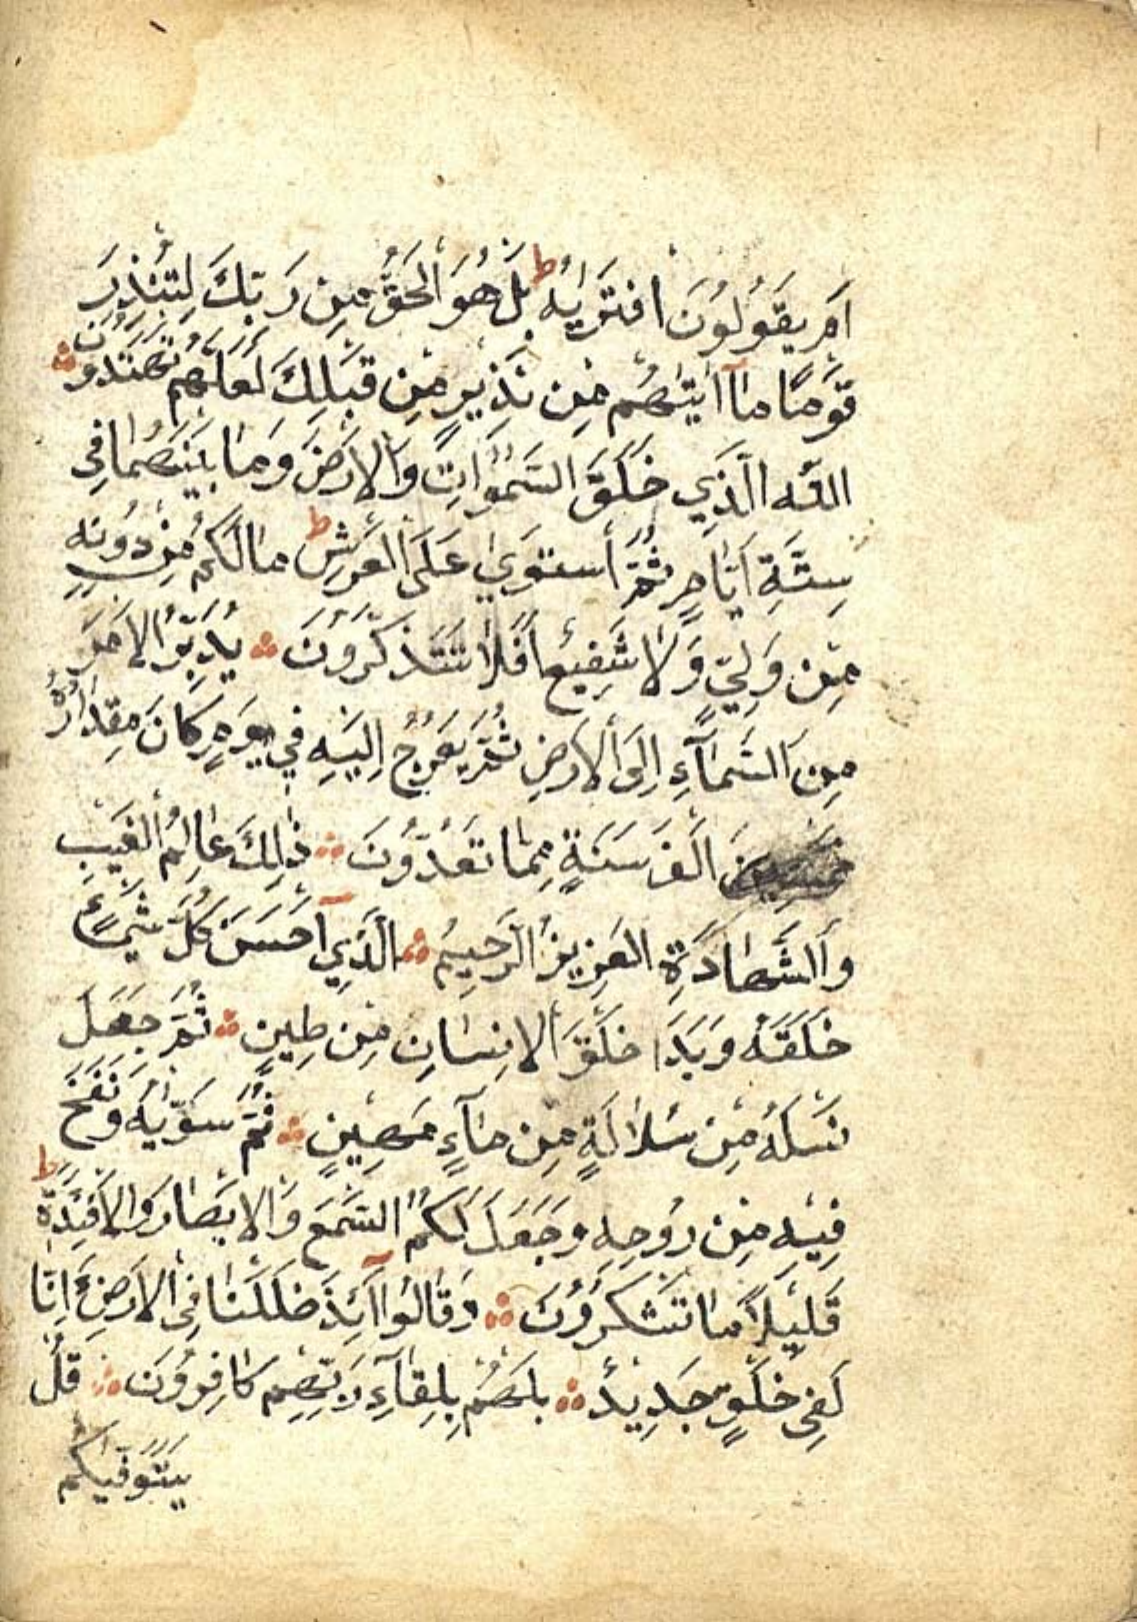 اَمْ يَقُولُونَ افْتَرٰيهُ ط بَلْ هُوَ الْحَقُّ مِنْ رَبِّكَ لِتُنْذِرَ
قَوْمًا مَا آاَتٰيهُمْ مِنْ نَذِيرٍ مِنْ قَبْلِكَ لَعَلَّهُمْ يَهْتَدُونَ
اللّٰه الَّذِي خَلَقَ السَّمٰوَاتِ وَالْاَرْضَ وَمَا بَيْنَهُمَا فِي
سِتَّةِ اَيَّامٍ ثُمَّ اسْتَوٰي عَلَى الْعَرْشِ ط مَالَكُمْ مِنْ دُونِه
مِنْ وَلِيٍّ وَلَا شَفِيعٍ اَفَلَا تَتَذَكَّرُونَ يُدَبِّرُ الْاَمْرَ
مِنَ السَّمَآءِ اِلَى الْاَرْضِ ثُمَّ يَعْرُجُ اِلَيْهِ فِي يَوْمٍ كَانَ مِقْدَارُهُ
اَلْفَ سَنَةٍ مِمَّا تَعُدُّونَ ذٰلِكَ عَالِمُ الْغَيْبِ
وَالشَّهَادَةِ الْعَزِيزُ الرَّحِيمُ الَّذِي آحْسَنَ كُلَّ شَيْءٍ
خَلَقَهُ وَبَدَا خَلْقَ الْاِنْسَانِ مِنْ طِينٍ ثُمَّ جَعَلَ
نَسْلَهُ مِنْ سُلَالَةٍ مِنْ مَآءٍ مَهِينٍ ثُمَّ سَوّٰيهُ وَنَفَخَ
فِيْهِ مِنْ رُوحِهِ وَجَعَلَ لَكُمُ السَّمْعَ وَالْاَبْصَارَ وَالْاَفْئِدَةَ ط
قَلِيلًا مَا تَشْكُرُونَ وَقَالُوا آئِذَ ضَلَلْنَا فِي الْاَرْضِ ءَاِنَّا
لَفِي خَلْقٍ جَدِيدٍ بَلْ هُمْ بِلِقَآءِ رَبِّهِمْ كَافِرُونَ قُلْ
يَتَوَفّٰيكُم